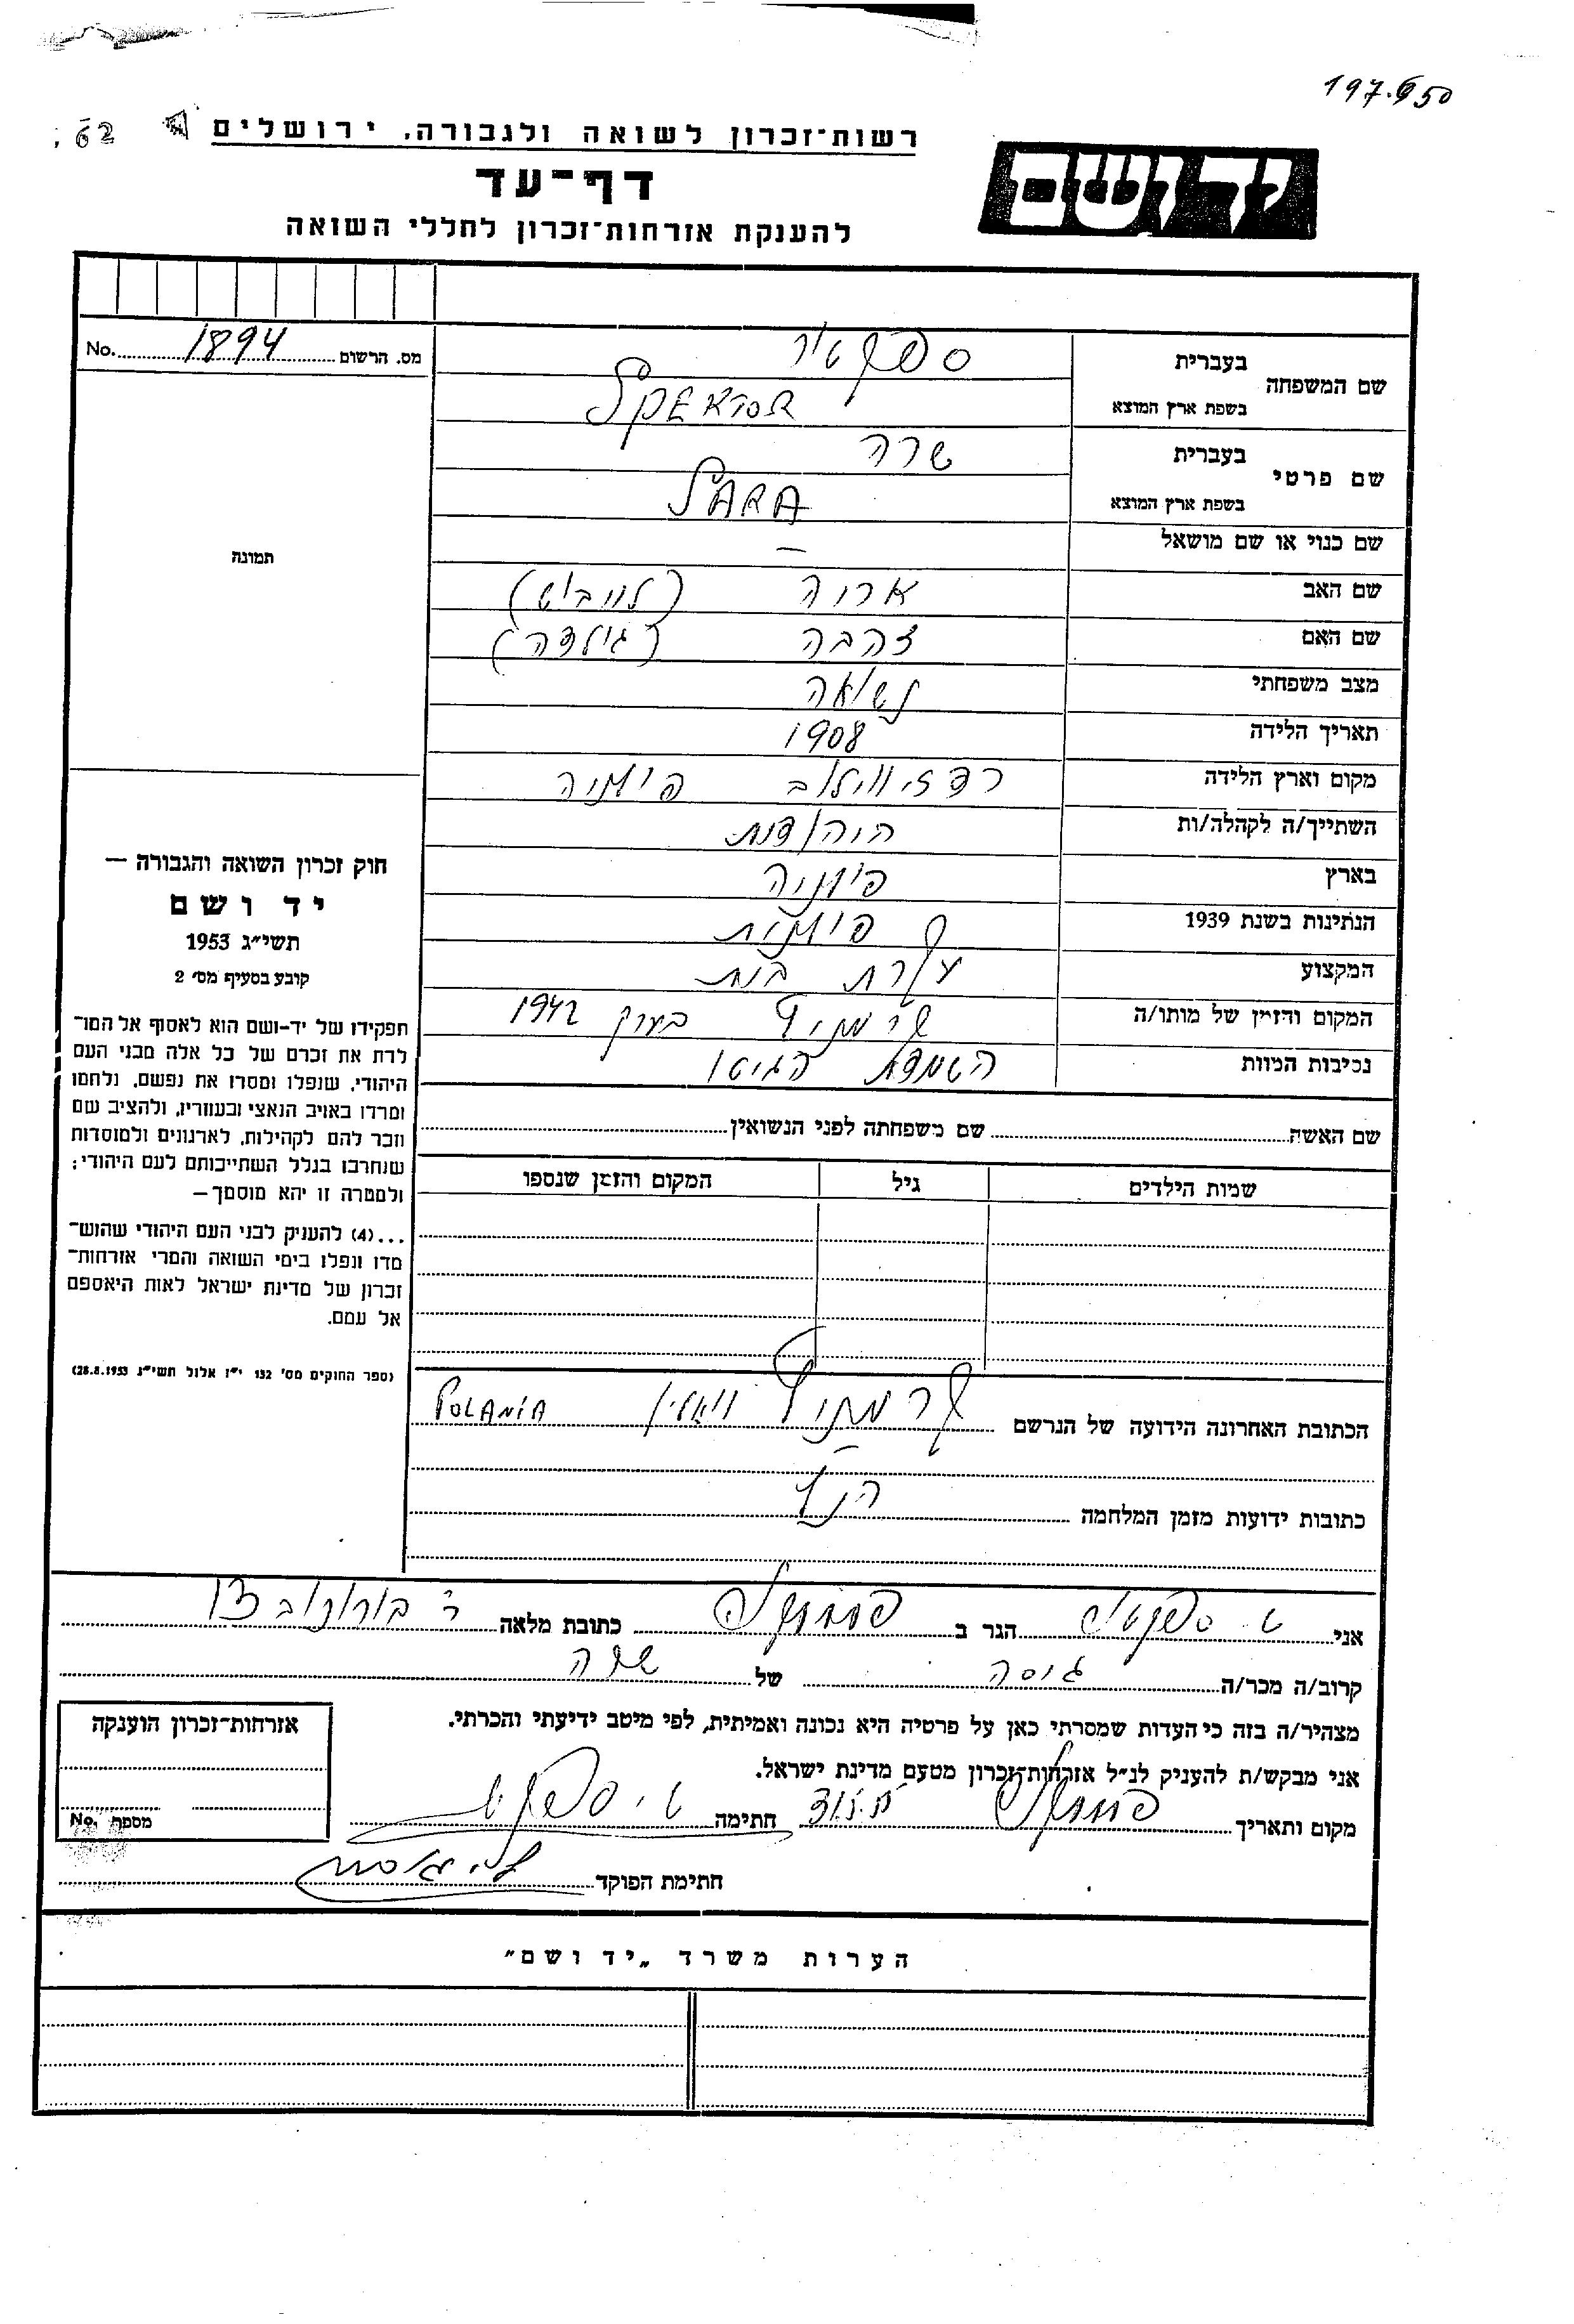 197.650
רשות־זכרון לשואה ולגבורה, ירושלים 62
יד ושם
דף־עד
להענקת אזרחות־זכרון לחללי השואה
מס. הרשום 1894 No.
תמונה
שם המשפחה בעברית ספקטור
בשפת ארץ המוצא SPEKTOR
שם פרטי בעברית שרה
בשפת ארץ המוצא SARA
שם כנוי או שם מושאל —
שם האב אריה (לייביש)
שם האם זהבה (גולדה)
מצב משפחתי נשואה
תאריך הלידה 1908
מקום וארץ הלידה רדזיווילוב פולניה
השתייך/ה לקהלה/ות היהודית
בארץ פולניה
הנתינות בשנת 1939 פולנית
המקצוע עקרת בית
המקום והזמן של מותו/ה בערך 1942
נסיבות המוות השמדת הגיטו
שם האשה שם משפחתה לפני הנשואין
שמות הילדים גיל המקום והזמן שנספו
הכתובת האחרונה הידועה של הנרשם ווהלין POLANIA
כתובות ידועות מזמן המלחמה הנ״ל
חוק זכרון השואה והגבורה —
יד ושם
תשי״ג 1953
קובע בסעיף מס׳ 2
תפקידו של יד-ושם הוא לאסוף אל המו־
לדת את זכרם של כל אלה מבני העם
היהודי, שנפלו ומסרו את נפשם, נלחמו
ומרדו באויב הנאצי ובעוזריו, ולהציב שם
וזכר להם לקהילות, לארגונים ולמוסדות
שנחרבו בגלל השתייכותם לעם היהודי;
ולמטרה זו יהא מוסמך—
...(4) להעניק לבני העם היהודי שהוש־
מדו ונפלו בימי השואה והמרי אזרחות־
זכרון של מדינת ישראל לאות היאספם
אל עמם.
(ספר החוקים מס׳ 132 י״ז אלול תשי״ג 28.8.1953)
אני ט. ספקטור הגר ב כתובת מלאה
קרוב/ה מכר/ה גיסה של שרה
מצהיר/ה בזה כי העדות שמסרתי כאן על פרטיה היא נכונה ואמיתית, לפי מיטב ידיעתי והכרתי.
אני מבקש/ת להעניק לנ״ל אזרחות־זכרון מטעם מדינת ישראל.
מקום ותאריך חתימה ט. ספקטור
חתימת הפוקד
אזרחות־זכרון הוענקה
מספר No.
הערות משרד „יד ושם״